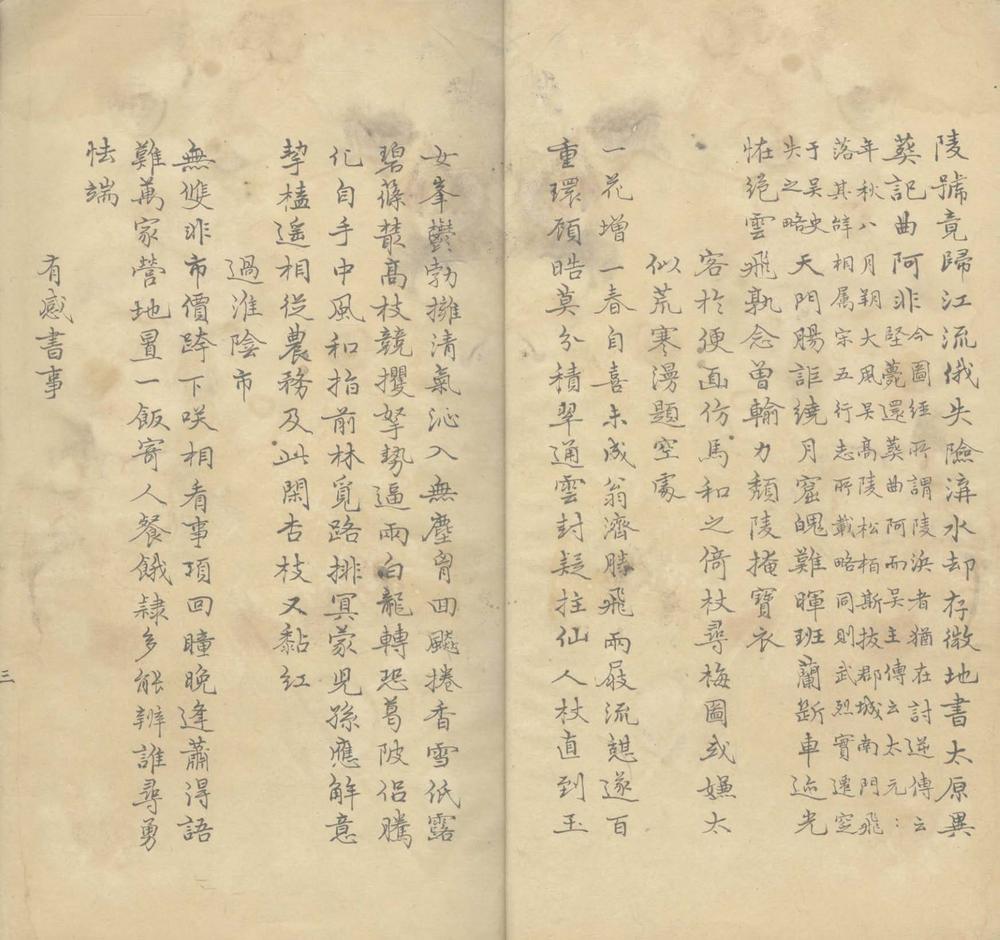 陵號竟歸江流俄失險湃水却存微地書太原異
葬記曲阿非
今圖經所謂陵浜者猶在討逆傳云
堅薨還葬曲阿而吳主傳云太元：
年秋八月朔大風吳高陵松栢斯拔郡城南門飛
落其辞相属宗五行志所載略同則武烈實遷空
于吳史
失之略
天門腸詎繞月窟魄難暉班蘭斷車迹光
恠絕雲飛孰念曾輸力頹陵掩寶衣
客於便面仿馬和之倚杖尋梅圖或嫌太
似荒寒漫題空處
一花增一春自喜未成翁濟勝飛兩屐流憩遂百
重環頎晧莫分積翠通雲封疑拄仙人杖直到玉
女峯鬱勃擁清氣沁入無塵胷回飈捲香雪低露
碧篠叢高枝競攫拏勢逼兩白龍轉恐葛陂侶騰
化自手中風和指前林覓路排冥蒙兒孫應解意
挈榼遥相從農務及此閑杏枝又黏紅
過淮陰市
無雙非市價跨下咲相看事項回瞳晚逢蕭淂語
難萬家營地冒一飯寄人餐餓隷多能辨誰尋勇
怯端
有感書事
三